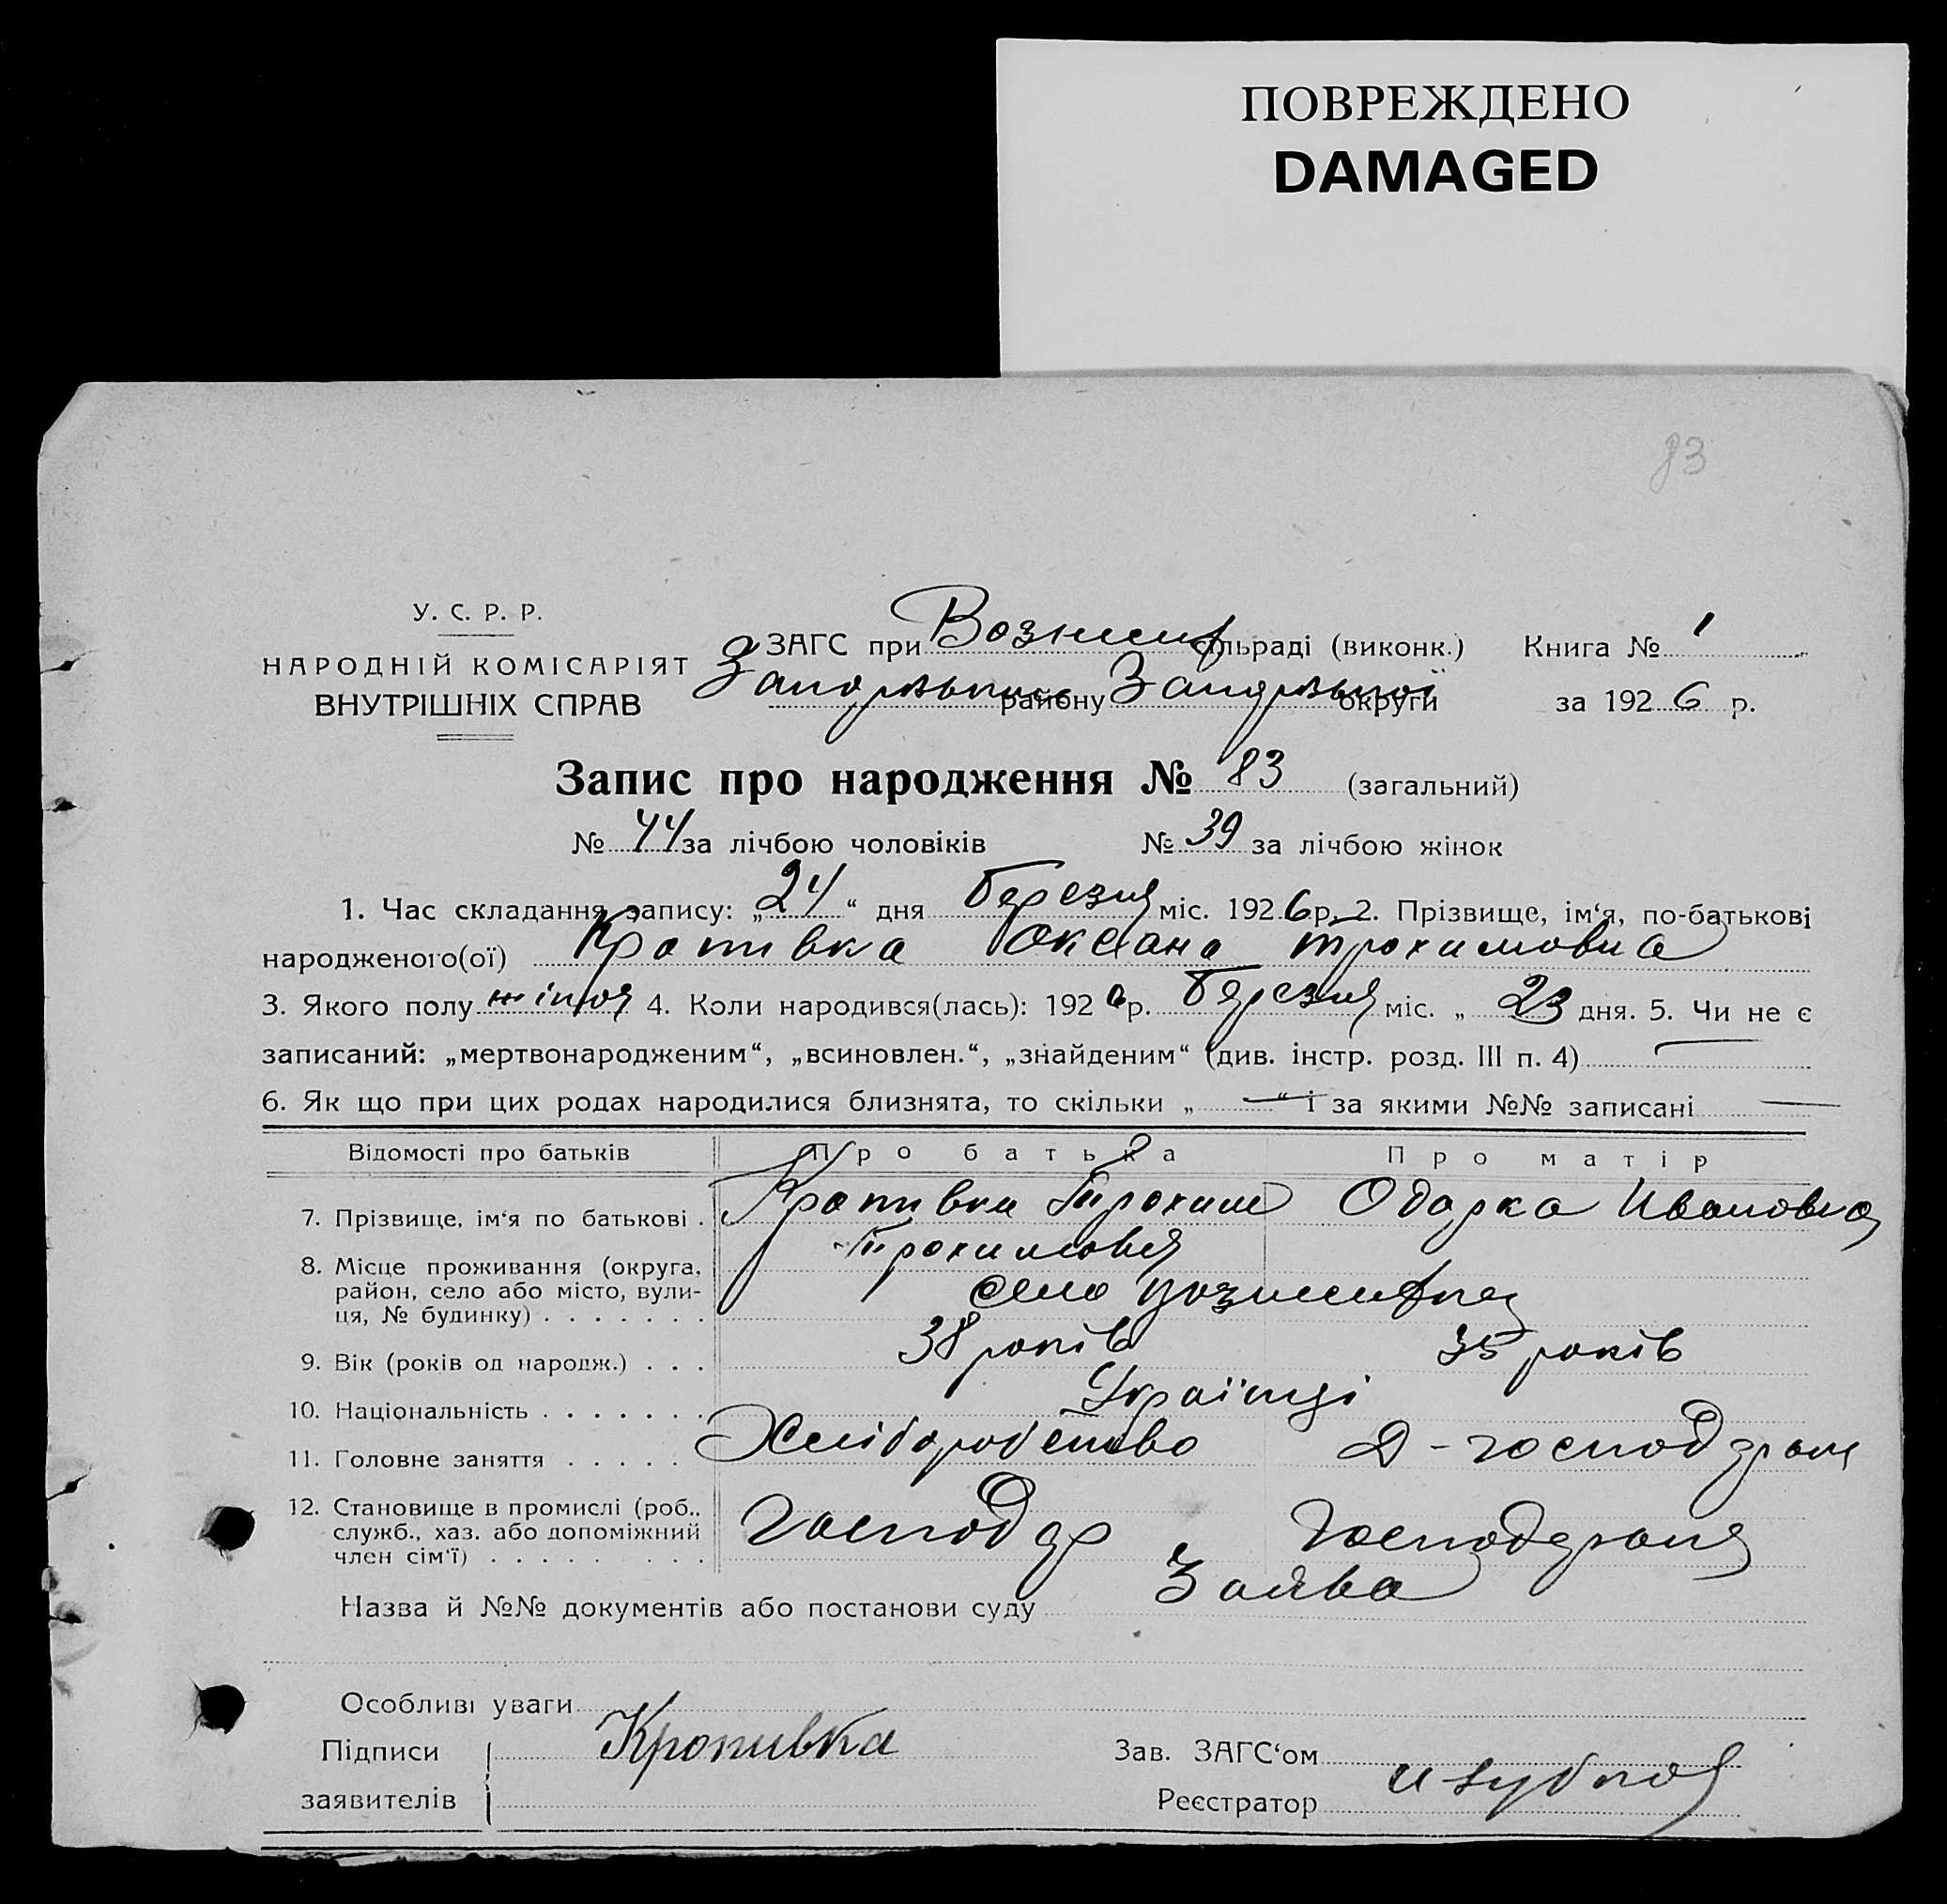 ПОВРЕЖДЕНО
DAMAGED
83
У. С. Р. Р.
НАРОДНІЙ КОМІСАРІЯТ
ВНУТРІШНІХ СПРАВ
ЗАГС при сільраді (виконк.) Книга № 1
району округи за 1926 р.
Запис про народження № 83 (загальний)
№ 44 за лічбою чоловіків № 39 за лічбою жінок
1. Час складання запису: „24“ дня березня міс. 1926 р. 2. Прізвище, ім‘я, по-батькові
народженого(ої) Кропивка Оксана Трохимовна
3. Якого полу жіночя 4. Коли народився(лась): 1926 р. Березня міс. „ 23 дня. 5. Чи не є
записаний: „мертвонародженим“, „всиновлен.“, „знайденим“ (див. інстр. розд. III п. 4) —
6. Як що при цих родах народилися близнята, то скільки „ — “ і за якими №№ записані —
Відомості про батьків Про батька Про матір
7. Прізвище, ім‘я по батькові . Кропивка Трохим Одарка Ивановна
Трохимович
8. Місце проживання (округа,
район, село або місто, вули-
ця, № будинку) . . . . . . . село
9. Вік (років од народж.) . . . 38 років 35 років
10. Національність . . . . . . . Українці
11. Головне заняття . . . . . Хліборобство Д-господарка
12. Становище в промислі (роб.,
служб., хаз. або допоміжний
член сім‘ї) . . . . . . . . . Господар Господарка
Назва й №№ документів або постанови суду Заява
Особливі уваги
Підписи Кропивка Зав. ЗАГС‘ом
заявителів Реєстратор